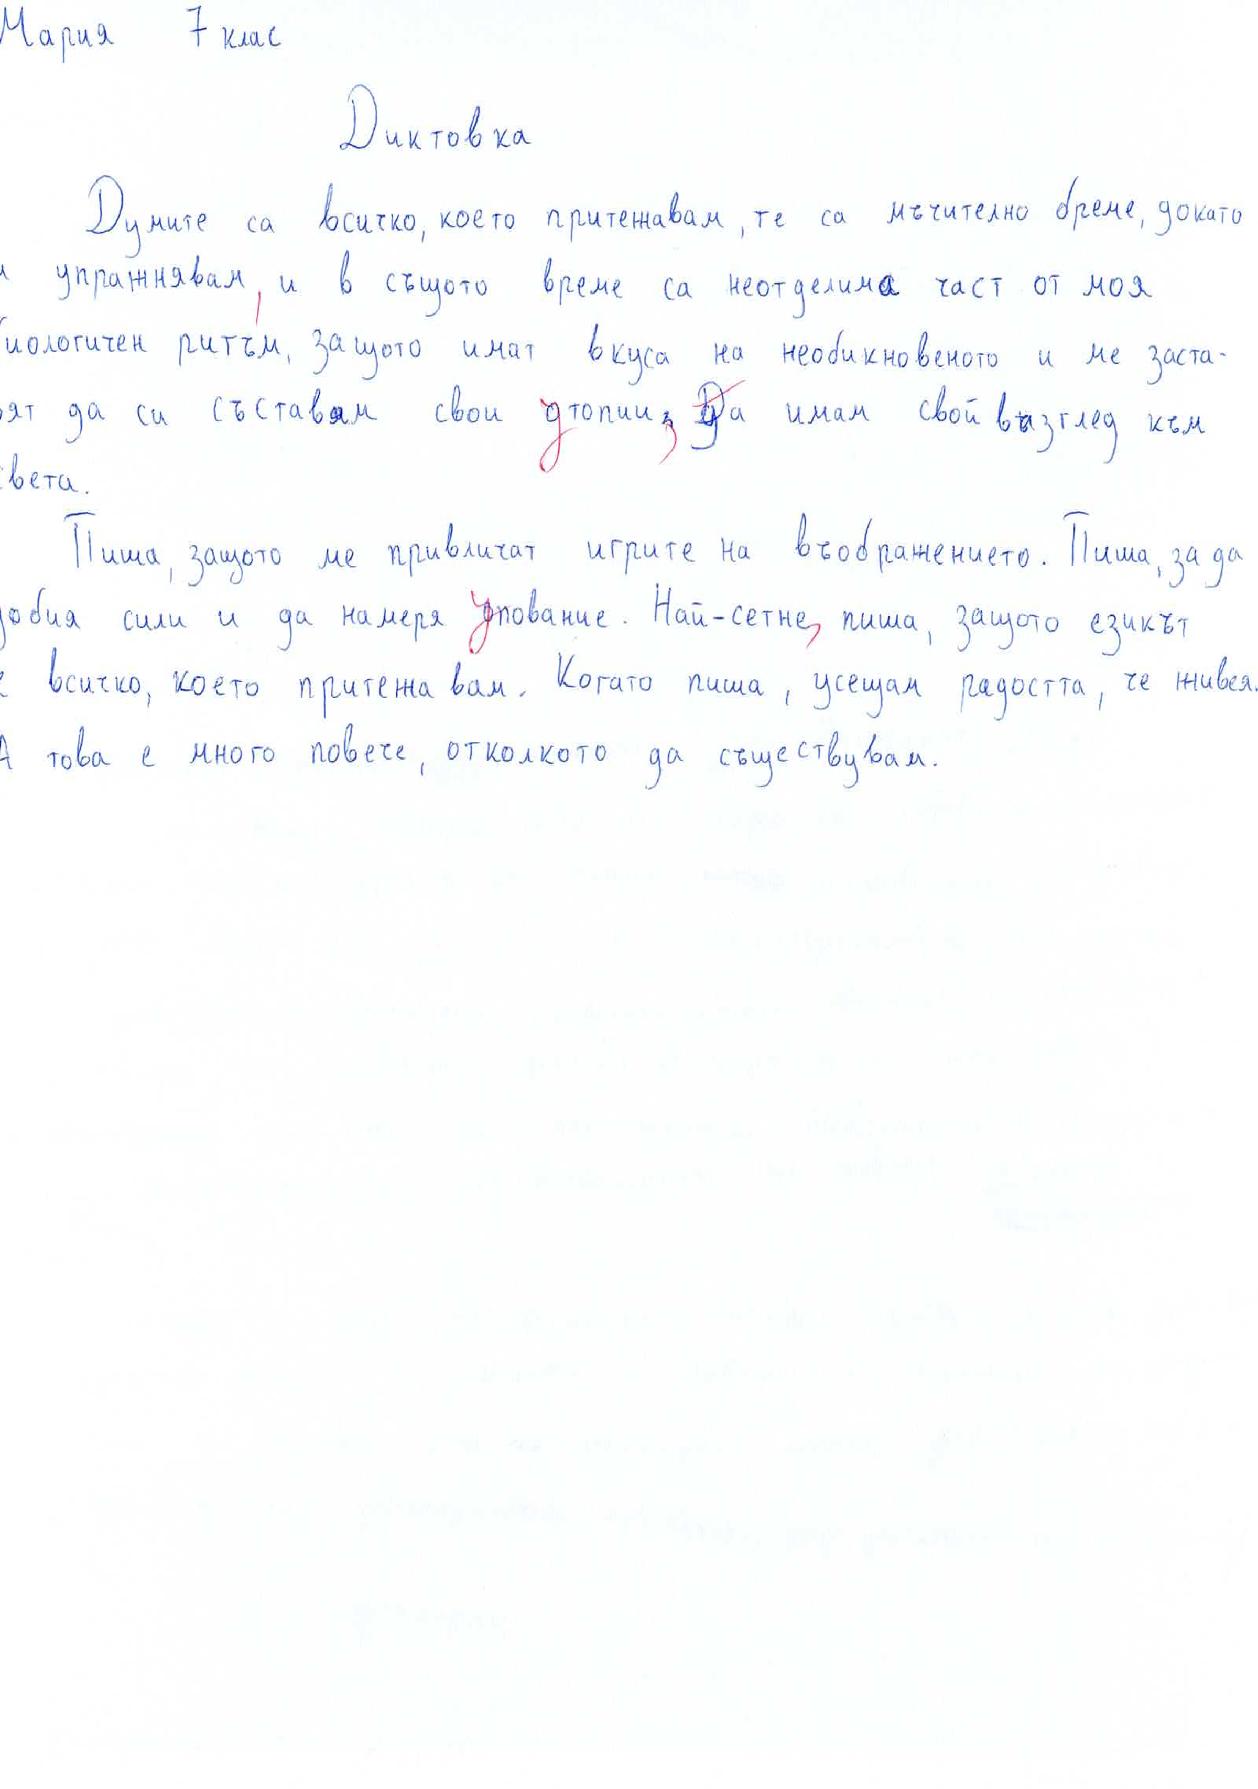 Мария 7 клас
Диктовка
Думите са всичко, което притежавам, те са мъчително бреме, докато
и упражнявам, и в същото време са неотделима част от моя
биологичен ритъм, защото имат вкуса на необикновеното и ме заста-
вят да си съставям свои утопии, да имам свой възглед към
света.
Пиша, защото ме привличат игрите на въображението. Пиша, за да
добия сили и да намеря упование. Най-сетне, пиша, защото езикът
е всичко, което притежавам. Когато пиша, усещам радостта, че живея.
А това е много повече, отколкото да съществувам.